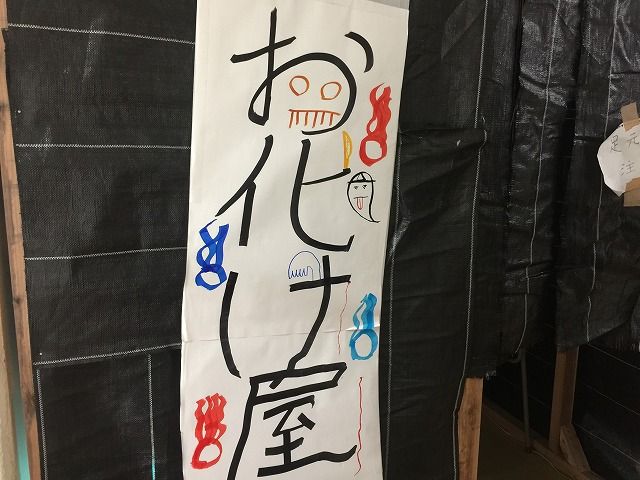 お化け屋
足元
注